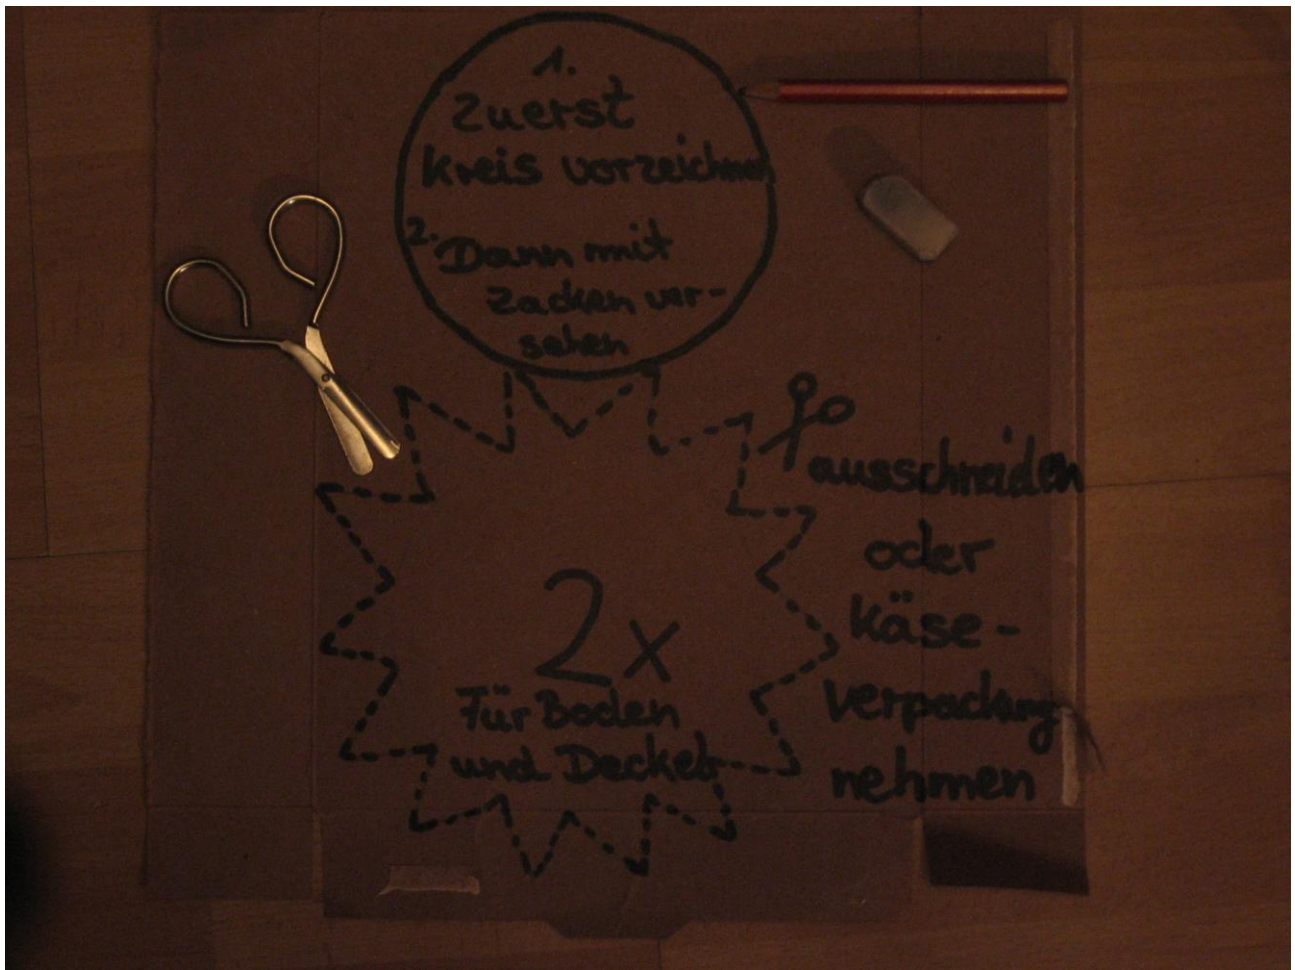 1.
Zuerst
Kreis vorzeichnen
2. Dann mit
Zacken ver-
sehen
ausschneiden
oder
Käse-
verpackung
nehmen
2x
Für Boden
und Deckel